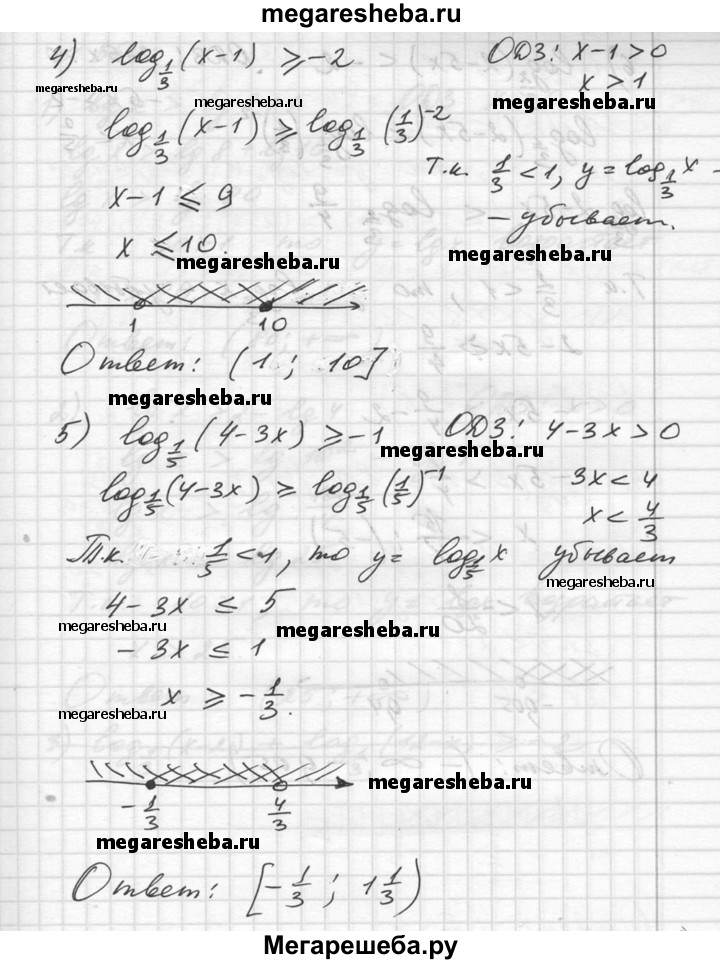 megaresheba.ru
4) log_{1/3}(x-1) ⩾ -2 ОДЗ: x-1>0
megaresheba.ru x>1
megaresheba.ru megaresheba.ru
log_{1/3}(x-1) ⩾ log_{1/3}(1/3)^{-2}
x-1 ⩽ 9 Т.к. 1/3 < 1, y = log_{1/3} x -
- убывает.
x ⩽ 10.
megaresheba.ru megaresheba.ru
1 10
Ответ: (1; 10]
megaresheba.ru
5) log_{1/5}(4-3x) ⩾ -1 ОДЗ: 4-3x>0
megaresheba.ru
log_{1/5}(4-3x) ⩾ log_{1/5}(1/5)^{-1} 3x < 4
x < 4/3
Т.к. 1/5 < 1, то y = log_{1/5} x убывает
megaresheba.ru
4-3x ≤ 5
megaresheba.ru megaresheba.ru
-3x ≤ 1
x ⩾ -1/3.
megaresheba.ru megaresheba.ru
megaresheba.ru
-1/3 4/3
megaresheba.ru
Ответ: [-1/3; 1 1/3)
Мегарешеба.ру